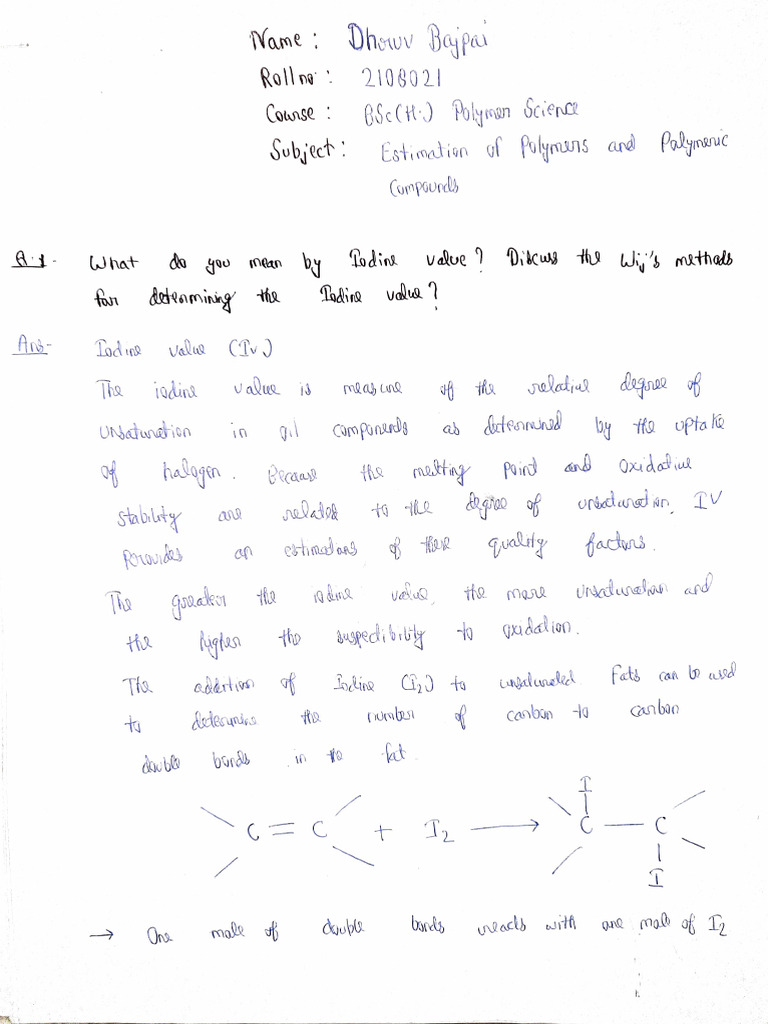 Name: Dhruv Bajpai
Roll no: 2108021
Course: BSc(H.) Polymer Science
Subject: Estimation of Polymers and Polymeric
Compounds
Q.1- What do you mean by Iodine value? Discuss the Wij's methods
for determining the Iodine value?
Ans- Iodine value (Iv)
The iodine value is measure of the relative degree of
unsaturation in oil components as determined by the uptake
of halogen. Because the melting point and oxidative
stability are related to the degree of unsaturation, IV
provides an estimations of these quality factors.
The greater the iodine value, the more unsaturation and
the higher the suspectibility to oxidation.
The addition of Iodine (I2) to unsaturated Fats can be used
to determine the number of carbon to carbon
double bonds in the fat.
I
C = C + I2 → C — C
I
→ One mole of double bonds reacts with one mole of I2